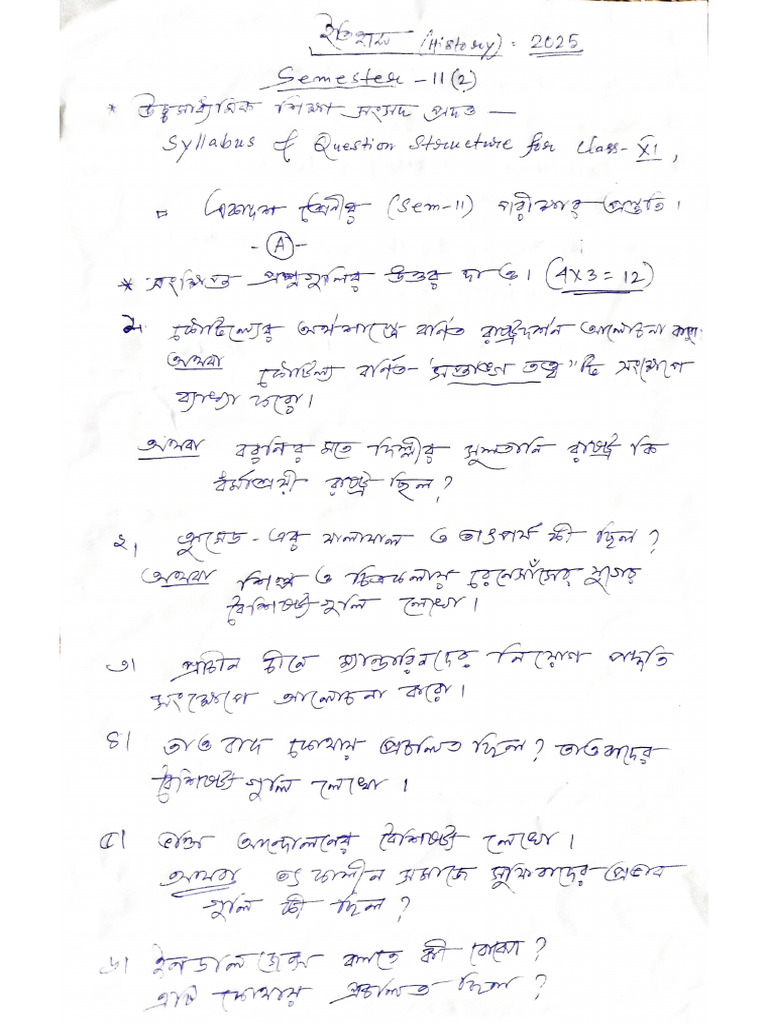 ইতিহাস (History) : 2025
Semester - II (2)
* উচ্চমাধ্যমিক শিক্ষা সংসদ প্রদত্ত —
Syllabus & Question Structure for Class - XI,
▫ একাদশ শ্রেণীর (Sem-II) পরীক্ষার প্রস্তুতি।
- (A) -
* সংক্ষিপ্ত প্রশ্নগুলির উত্তর দাও। (4x3=12)
১. কৌটিল্যের অর্থশাস্ত্রে বর্ণিত রাষ্ট্রদর্শন আলোচনা করো।
অথবা কৌটিল্য বর্ণিত - 'সপ্তাঙ্গ তত্ত্ব" টি সংক্ষেপে
ব্যাখ্যা করো।
অথবা বরনির মতে দিল্লীর সুলতানি রাষ্ট্র কি
ধর্মাশ্রয়ী রাষ্ট্র ছিল?
২। ক্রুসেড - এর ফলাফল ও তাৎপর্য কী ছিল?
অথবা শিল্প ও চিত্রকলায় রেনেসাঁসের যুগের
বৈশিষ্ট্যগুলি লেখো।
৩। প্রাচীন চীনে ম্যান্ডারিনদের নিয়োগ পদ্ধতি
সংক্ষেপে আলোচনা করো।
৪। তাও বাদ কোথায় প্রচলিত ছিল? তাওবাদের
বৈশিষ্ট্য গুলি লেখো।
৫। ভক্তি আন্দোলনের বৈশিষ্ট্য লেখো।
অথবা তৎকালীন সমাজে সুফিবাদের প্রভাব
গুলি কী ছিল?
৬। ইনডালজেন্স বলতে কী বোঝো?
এটি কোথায় প্রচলিত ছিল?